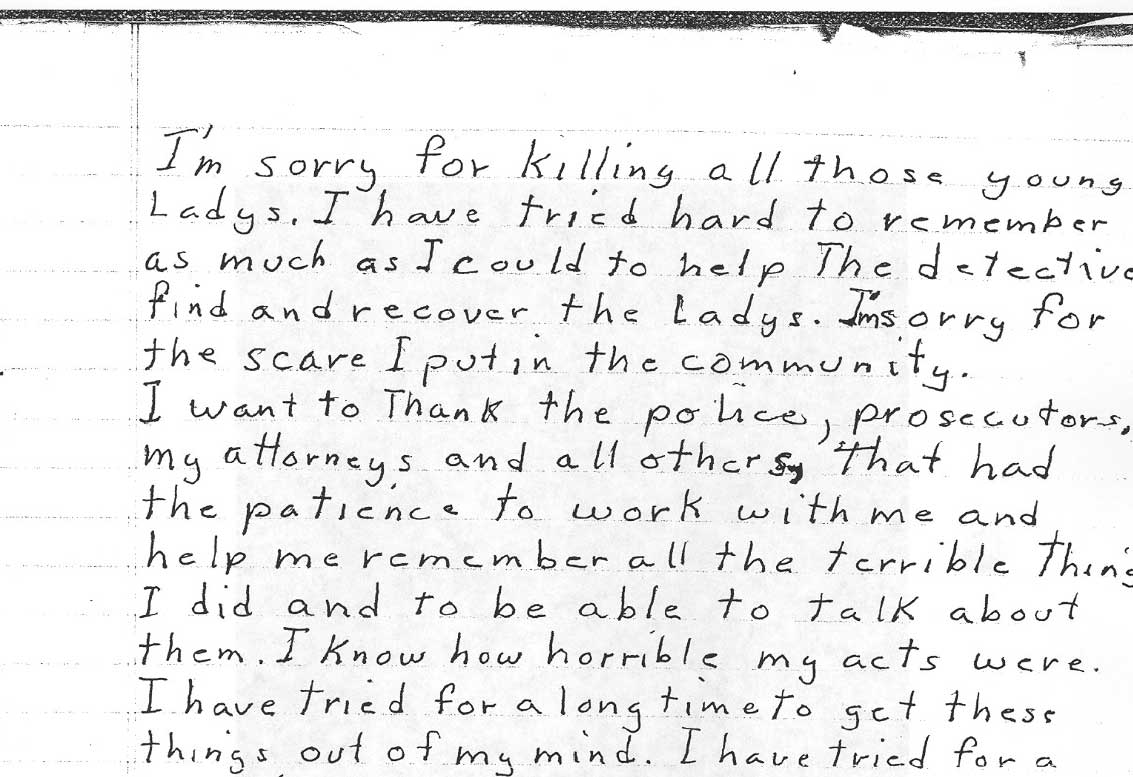 I'm sorry for killing all those young
Ladys. I have tried hard to remember
as much as I could to help The detective
find and recover the Ladys. I'm sorry for
the scare I put in the community.
I want to Thank the police, prosecutors,
my attorneys and all others, that had
the patience to work with me and
help me remember all the terrible Thing
I did and to be able to talk about
them. I know how horrible my acts were.
I have tried for a long time to get these
things out of my mind. I have tried for a